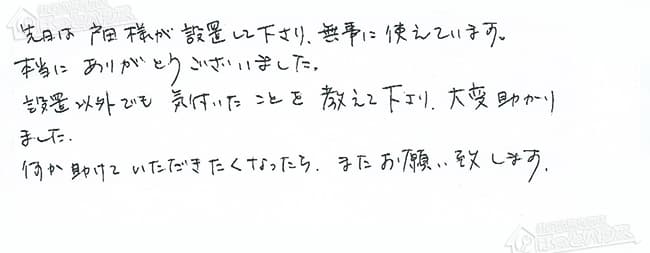 先日は戸田様が設置して下さり、無事に使えています。
本当にありがとうございいました。
設置以外でも気付いたことを教えて下さり、大変助かり
ました。
何か助けていただきたくなったら、またお願い致します。